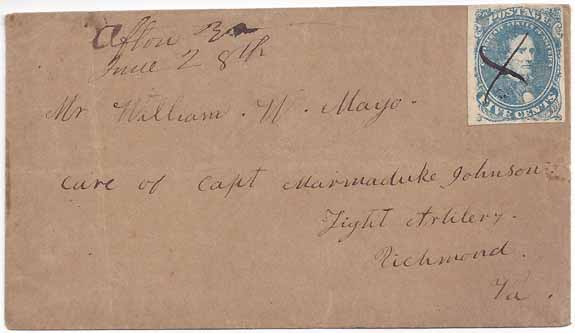 Afton Va
June 28th
POSTAGE
FIVE CENTS
Mr William. W. Mayo.
care of Capt Marmaduke Johnson.
Light Artilery.
Richmond.
Va.